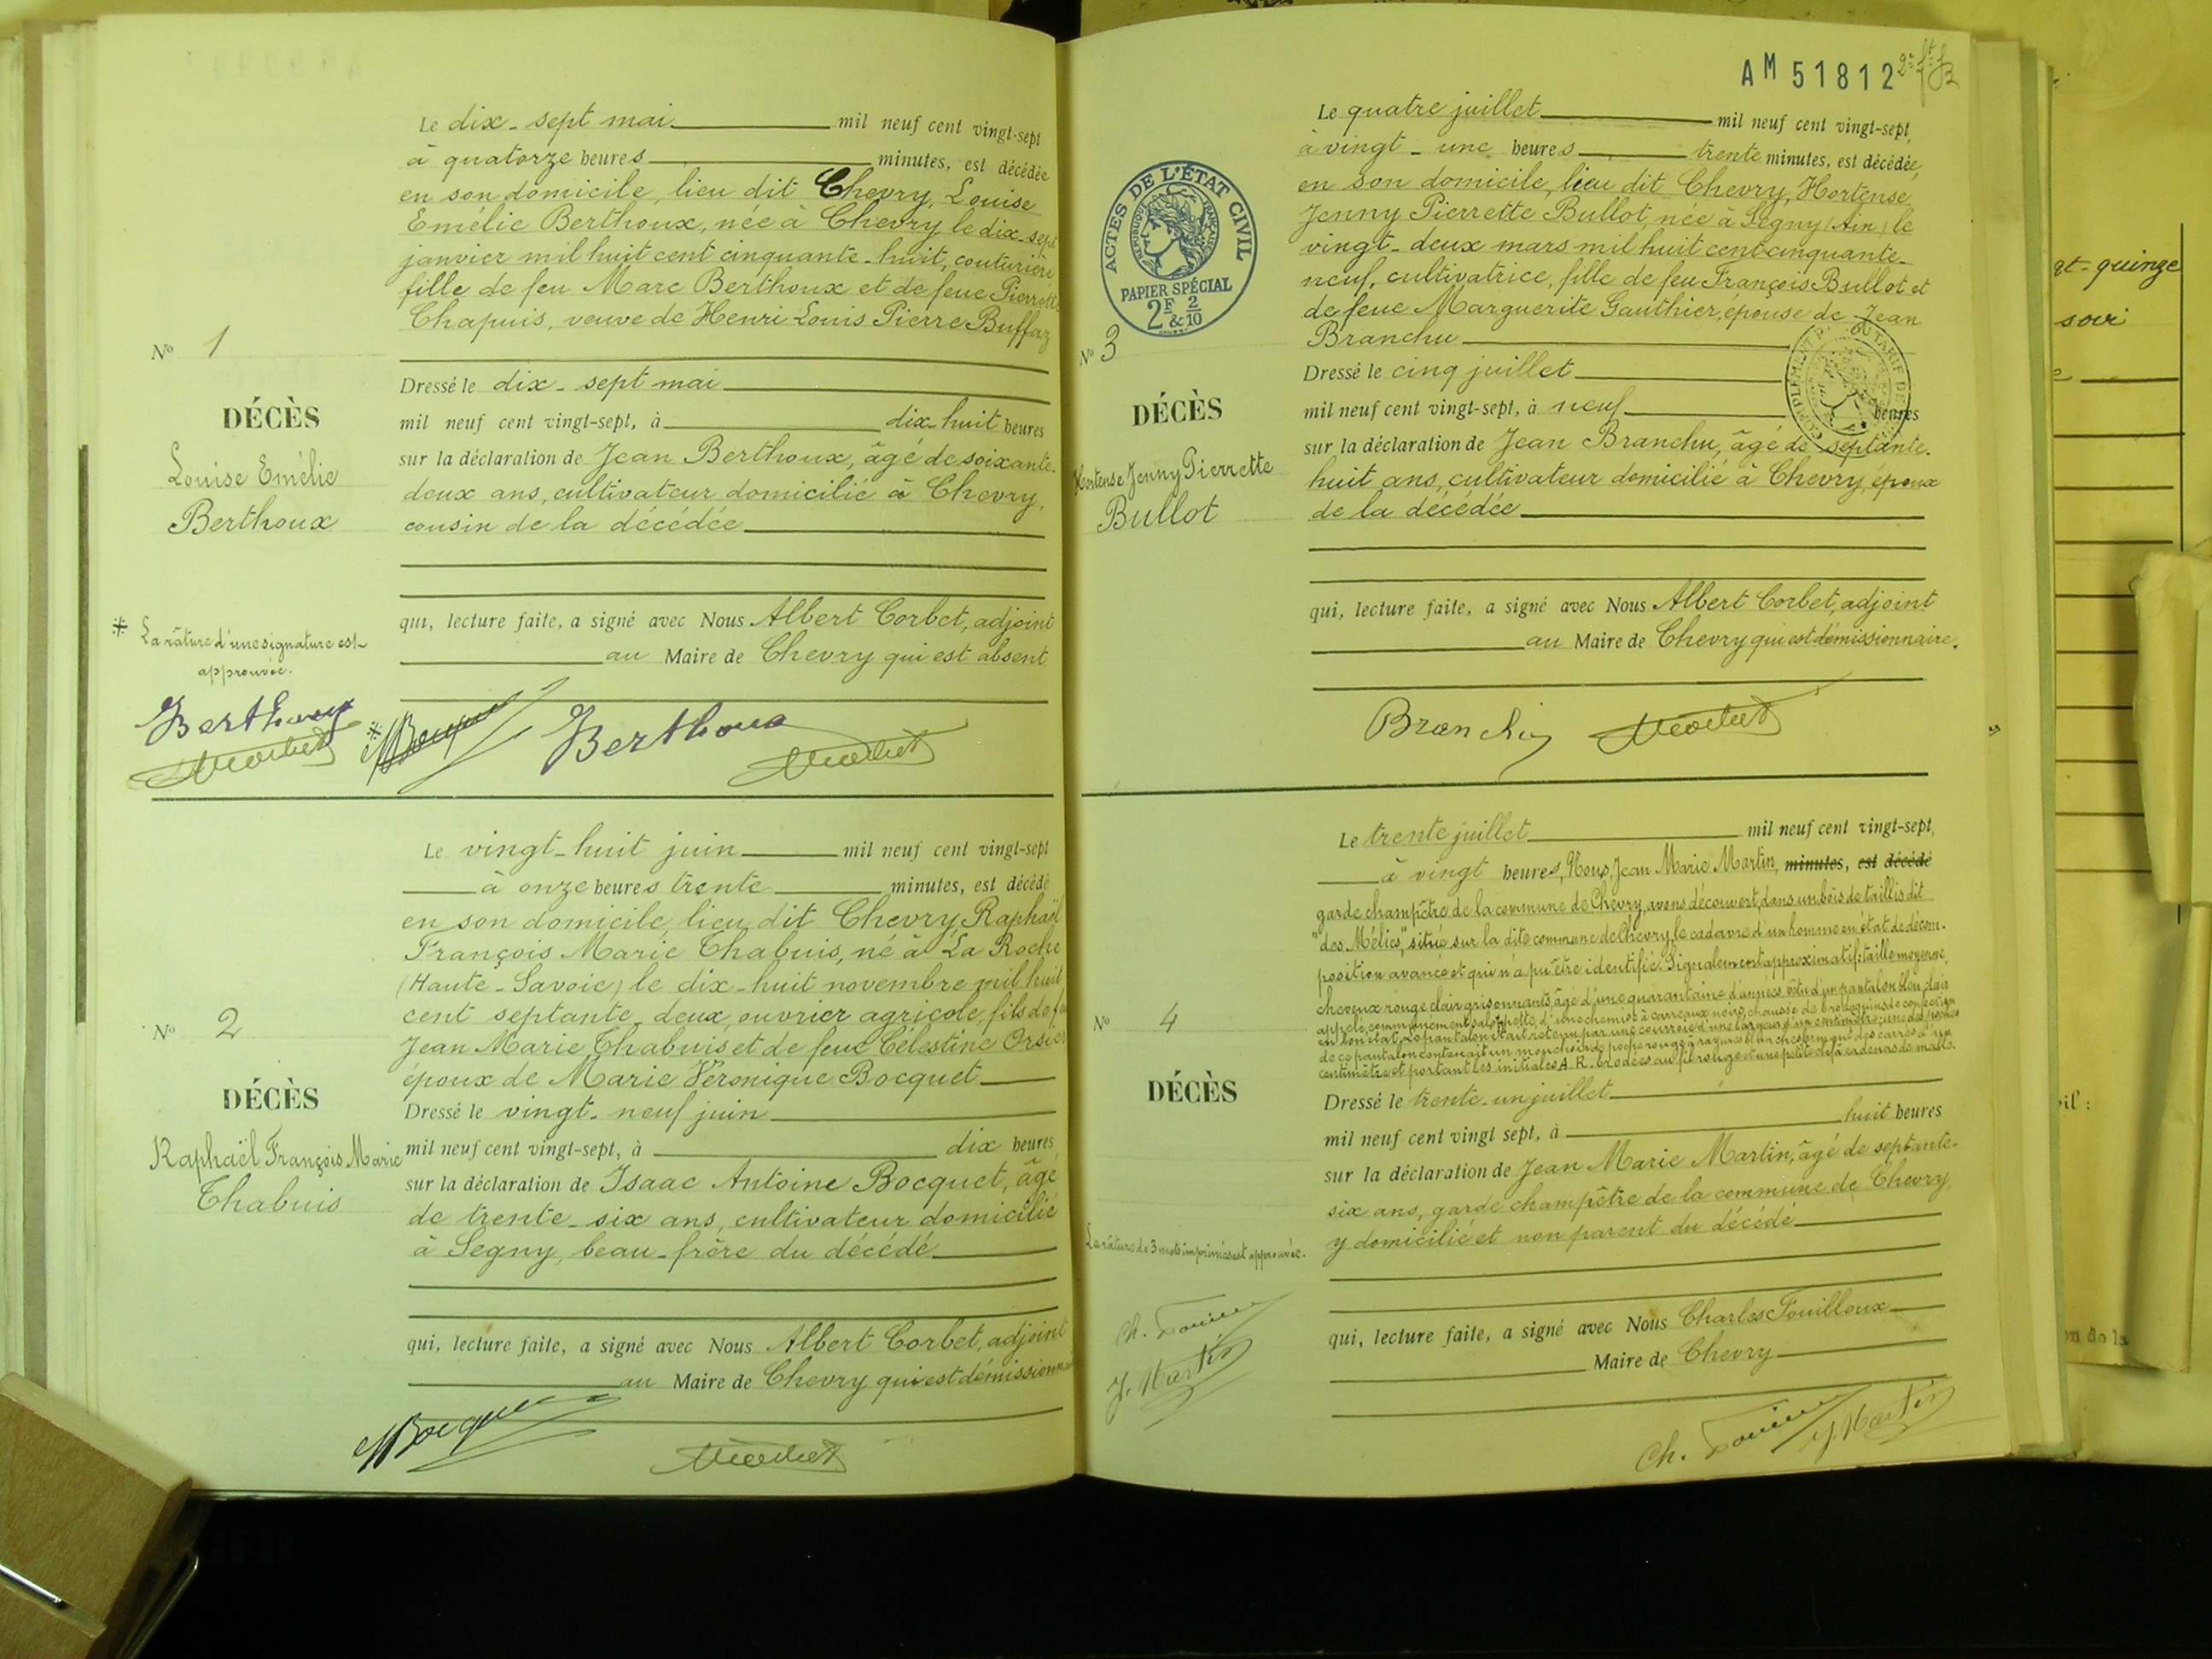 Le dix-sept mai mil neuf cent vingt-sept
à quatorze heures minutes, est décédée
en son domicile, lieu dit Chevry, Louise
Emélie Berthoux, née à Chevry le dix-sept
janvier mil huit cent cinquante-huit, couturière
fille de feu Marc Berthoux et de feue Pierrette
Chapuis, veuve de Henri Louis Pierre Buffaz
No 1
Dressé le dix-sept mai
DÉCÈS
mil neuf cent vingt-sept, à dix-huit heures
Louise Emélie
Berthoux
sur la déclaration de Jean Berthoux, âgé de soixante-
deux ans, cultivateur domicilié à Chevry,
cousin de la décédée
* La râture d'une signature est
approuvée.
qui, lecture faite, a signé avec Nous Albert Corbet, adjoint
au Maire de Chevry qui est absent
Berthoux
* Berthoux
Le vingt-huit juin mil neuf cent vingt-sept
à onze heures trente minutes, est décédé
en son domicile, lieu dit Chevry Raphaël
François Marie Chabuis, né à La Roche
(Haute-Savoie) le dix-huit novembre mil huit
cent septante-deux, ouvrier agricole, fils de feu
Jean Marie Chabuis et de feue Célestine
époux de Marie Véronique Bocquet
No 2
Dressé le vingt-neuf juin
DÉCÈS
mil neuf cent vingt-sept, à dix heures
Raphaël François Marie
Chabuis
sur la déclaration de Isaac Antoine Bocquet, âgé
de trente-six ans, cultivateur domicilié
à Segny, beau-frère du décédé
qui, lecture faite, a signé avec Nous Albert Corbet, adjoint
au Maire de Chevry qui est démissionnaire
AM 51812
Le quatre juillet mil neuf cent vingt-sept,
à vingt-une heures trente minutes, est décédée,
en son domicile, lieu dit Chevry, Hortense
Jenny Pierrette Bullot, née à Segny (Ain) le
vingt-deux mars mil huit cent cinquante-
neuf, cultivatrice, fille de feu François Bullot et
de feue Marguerite Gauthier, épouse de Jean
Branchu
ACTES DE L'ÉTAT CIVIL
RÉPUBLIQUE FRANÇAISE
PAPIER SPÉCIAL
2F & 2/10
No 3
Dressé le cinq juillet
DÉCÈS
mil neuf cent vingt-sept, à neuf heures
Hortense Jenny Pierrette
Bullot
sur la déclaration de Jean Branchu, âgé de septante-
huit ans, cultivateur domicilié à Chevry, époux
de la décédée
qui, lecture faite, a signé avec Nous Albert Corbet, adjoint
au Maire de Chevry qui est démissionnaire.
Branchu
Le trente juillet mil neuf cent vingt-sept,
à vingt heures, Nous, Jean Marie Martin, minutes, est décédé
garde champêtre de la commune de Chevry, avons découvert, dans un bois de taillis dit
"des Mélics", situé sur la dite commune de Chevry, le cadavre d'un homme en état de décom-
position avancée et qui n'a pu être identifié. Signalement approximatif: taille moyenne,
cheveux rouge clair grisonnants, âgé d'une quarantaine d'années, vêtu d'un pantalon bleu clair
appelé communément salopette, d'une chemise à carreaux noirs, chaussé de brodequins de confection
en bon état. Le pantalon était retenu par une courroie d'une largeur d'un centimètre; une des poches
de ce pantalon contenait un mouchoir de poche rouge à rayures blanches formant des carrés d'un
centimètre et portant les initiales A. R. brodées au fil rouge et une petite clef à cadenas de malle.
No 4
Dressé le trente-un juillet
DÉCÈS
mil neuf cent vingt sept, à huit heures
sur la déclaration de Jean Marie Martin, âgé de septante-
six ans, garde champêtre de la commune de Chevry,
y domicilié et non parent du décédé
La râture de 3 mots imprimés est approuvée.
qui, lecture faite, a signé avec Nous Charles Fouilloux
Maire de Chevry
J. Martin
J. Martin
gt-quinze
soir